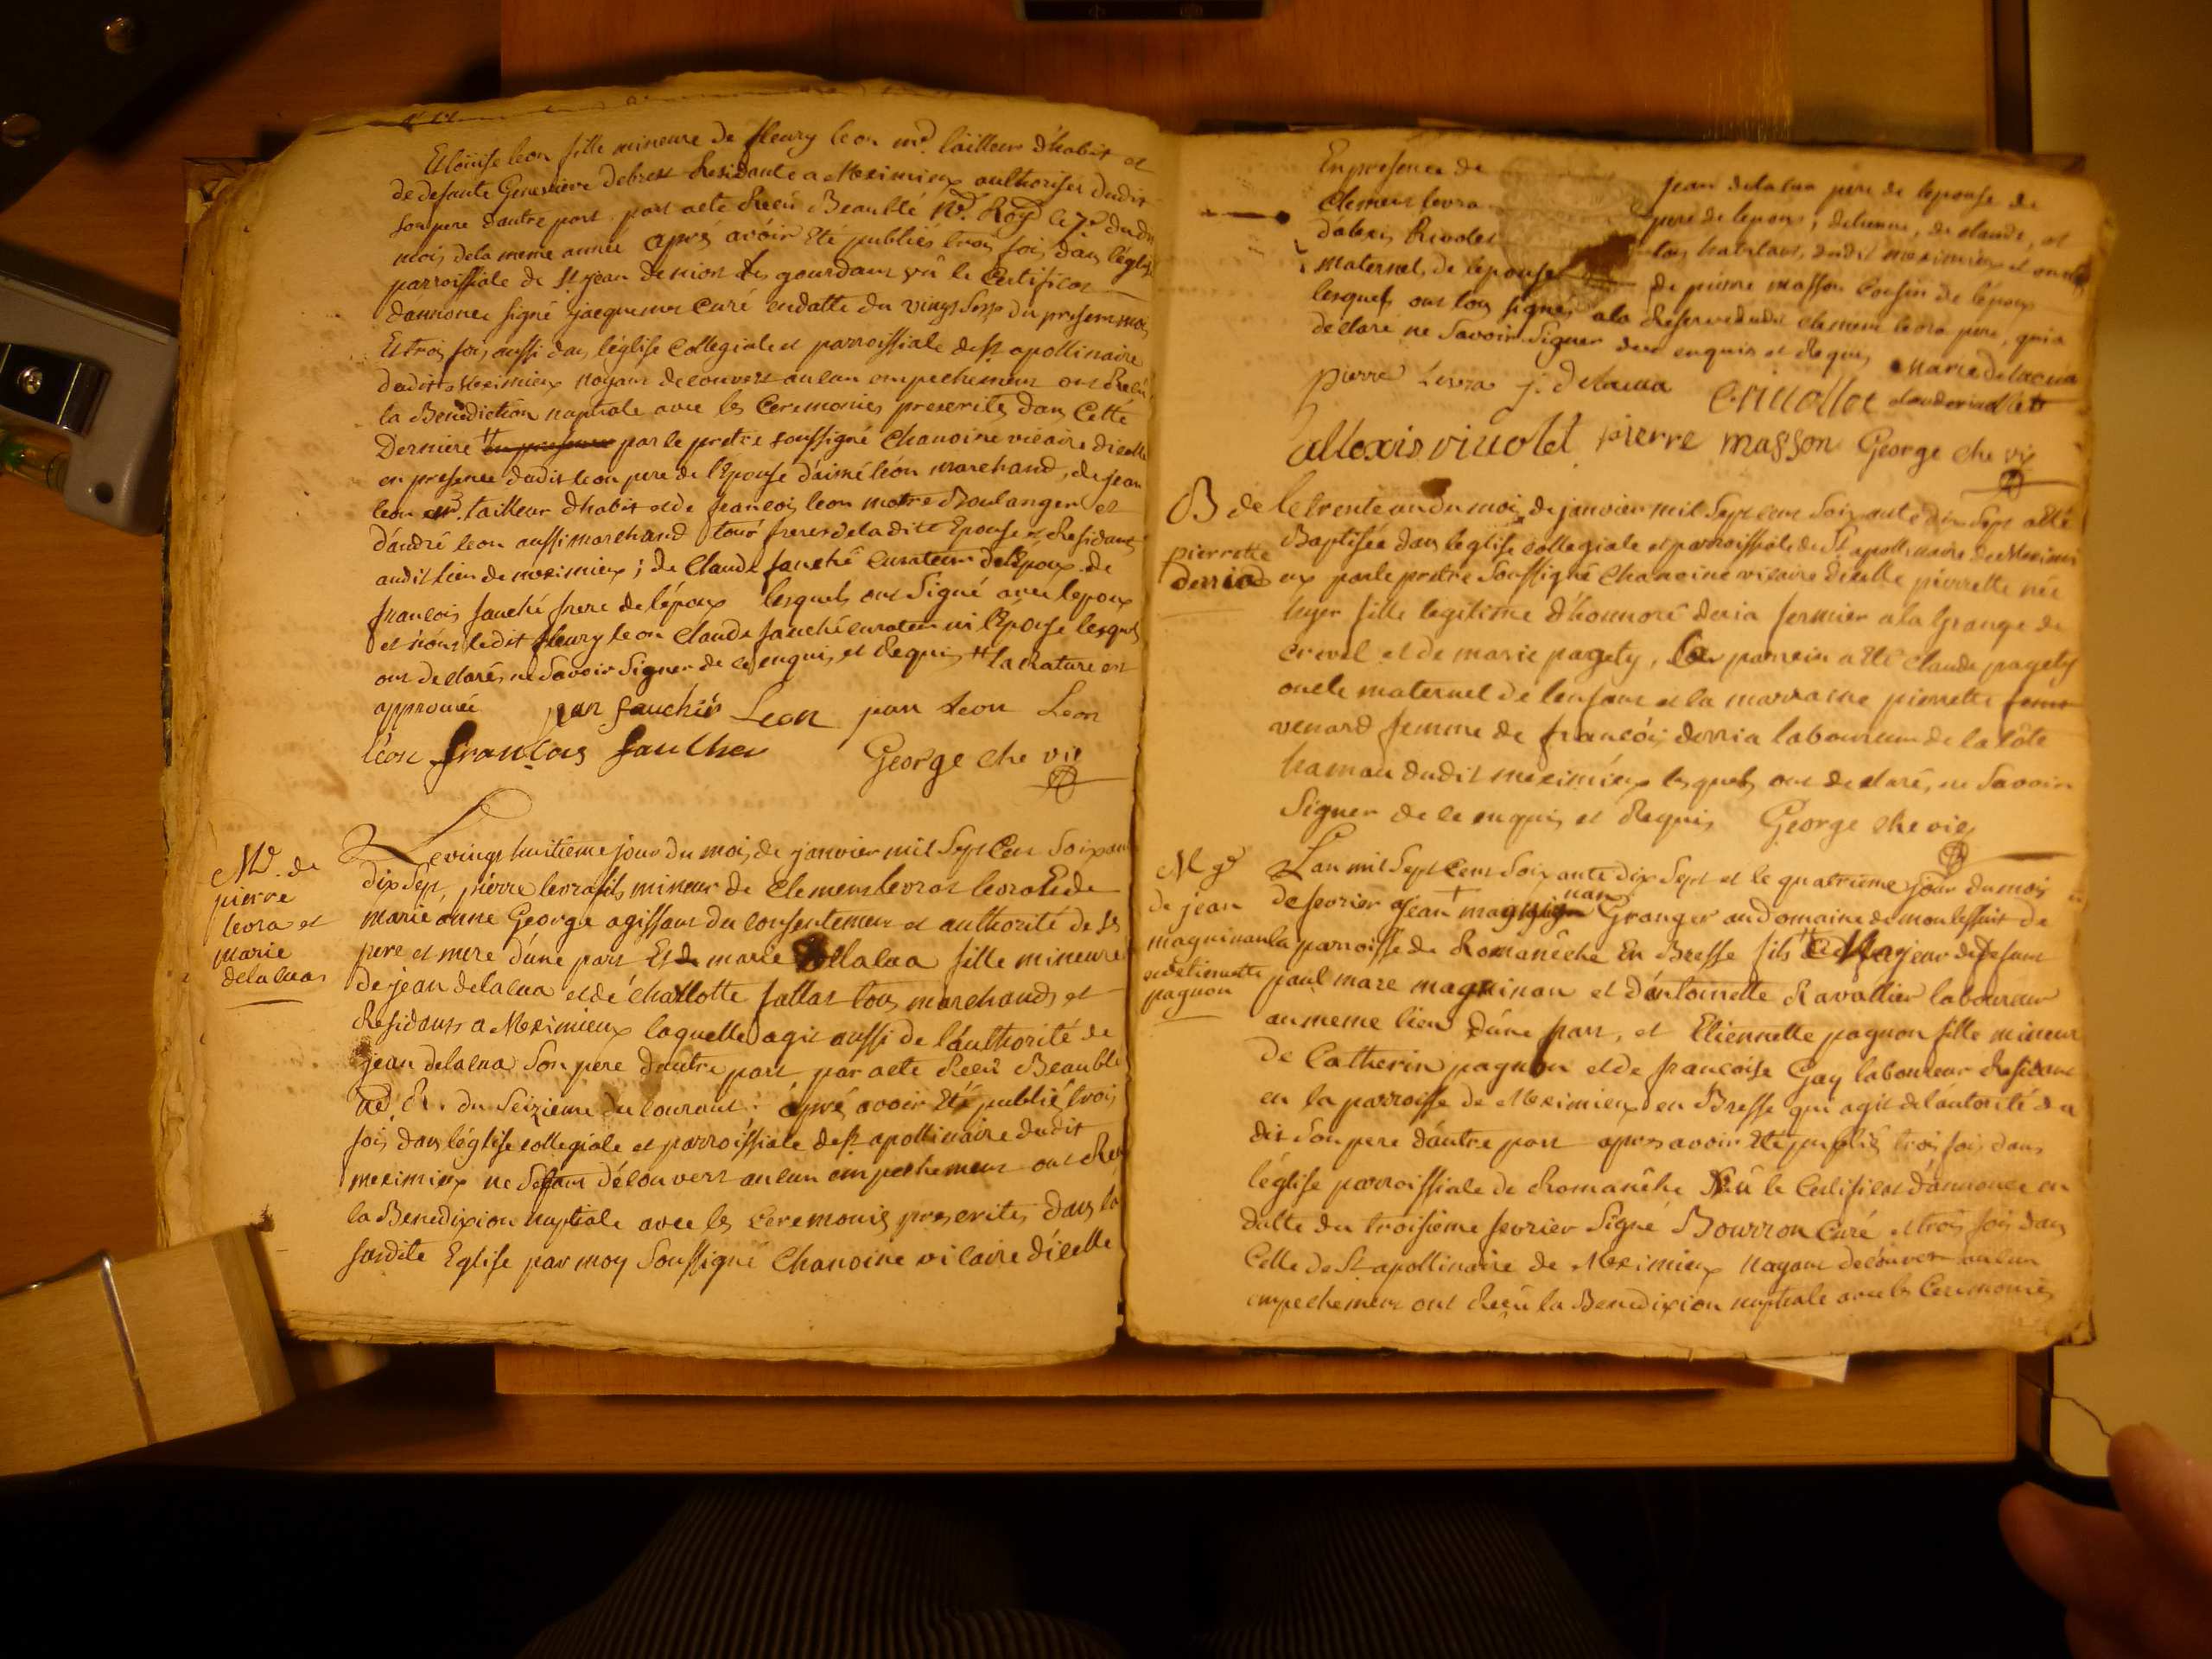 Et loüise leon fille mineure de fleury leon md. tailleur d'habit et
de defunte Genevieve debrest Residante a Meximieux authorisée dudit
son pere dautre part, par acte Reçu Beaublé Nre. Royl le 7e. dudt
mois de la meme année aprés avoir Eté publiés trois fois dans léglise
parroissiale de st. jean de niost des gourdans vû le Certificat
dannonce signé jacquemet curé en datte du vingt sept du present mois
Et trois fois aussi dans léglise collegiale et parroissiale de st apollinaire
dudit Meximieux nayant decouvert aucun empechement ont Reçu
la Benediction nuptiale avec les Ceremonies prescrites dans Cette
Derniere en presence par le pretre soussigné Chanoine vicaire dicelle
en presence dudit leon pere de l'Epouse d'aimé léon marchand, de jean
leon md. tailleur dhabit et de francois leon maitre Boulanger et
d'andré leon aussi marchand tous freres de la dite Epouse et Residants
audit lieu de meximieux ; de Claude fauché curateur de l'Epoux de
francois fauché frere de lépoux lesquels ont Signé avec lepoux
et non ledit fleury leon Claude fauché curateur ni l'Epouse lesquels
ont declaré ne Savoir Signer de ce enquis et Requis la Rature est
approuvée jean fauchér Leon jean Leon Leon
léon françois faucher George che vic
M. de
pierre
levra et
marie
delacua
Le vingt huitieme jour du mois de janvier mil Sept Cent Soixante
dix Sept, pierre levra fils mineur de Clement levrat levra Et de
marie anne George agissant du consentement et authorité de Ses
pere et mere d'une part Et de marie dellacua fille mineure
de jean delacua et de charlotte fattat tous marchands et
Residants a Meximieux laquelle agit aussi de l'authorité de
jean delacua Son pere dautre part par acte Reçu Beaublé
nre. R. du Seizieme du courant : aprés avoir Eté publié trois
fois dans léglise collegiale et parroissiale de st apollinaire dudit
meximieux ne Sétant découvert aucun empechement ont Reçu
la Benedixion nuptiale avec les Ceremonies prescrites dans la
susdite Eglise par moy Soussigné Chanoine vicaire dicelle
En presence de jean delacua pere de lepouse de
Clement levra pere de lepoux ; detienne, de claude, et
d'alexis Rivolet tous habitants dudit meximieux et oncles
maternels de lepouse de pierre masson Cousin de lépoux
lesquels ont tous signés a la Reserve dudit clement levra pere, qui a
déclaré ne Savoir Signer de ce enquis et Requis marie delacua
pierre Levra j. delacua E. rivollet claude rivollet
allexis rivolet pierre masson George che vic
B de
pierrette
derria
le trente un du mois de janvier mil Sept cent Soixante dix Sept a Eté
Baptisée dans leglise collegiale et parroissiale de St apollinaire de Meximi
eux par le pretre Soussigné Chanoine vicaire dicelle pierrette née
hyer fille legitime d'honnoré deria fermier a la Grange de
crevel et de marie pagety, Le parrein a Eté claude pagety
oncle maternel de lenfant et la marraine pierrette
venard femme de francois derria laboureur de la côte
hamau dudit meximieux lesquels ont declaré, ne Savoir
Signer de ce enquis et Requis George che vic
M ge
de jean
maguinan
et detiennette
pagnon
Lan mil Sept Cent Soixante dix Sept et le quatrieme jour du mois
de fevrier jean maguinan Granger au Domaine de de
la parroisse de Romanêche En Bresse fils Majeur de Defunt
paul marc maguinan et d'antoinette Ravallier laboureur
au meme lieu d'une part, et Etiennette pagnon fille mineure
de Catherin pagnon et de francoise Gay laboureur Residant
en la parroisse de Meximieux en Bresse qui agit de l'autorité du
dit Son pere d'autre part apres avoir Eté publiés trois fois dans
léglise parroissiale de Romanêche Vû le Certificat d'annonce en
datte du troisieme fevrier Signé Bourron Curé et trois fois dans
Celle de St apollinaire de Meximieux nayant découvert aucun
empechement ont Reçu la Benedixion nuptiale avec les Ceremonies